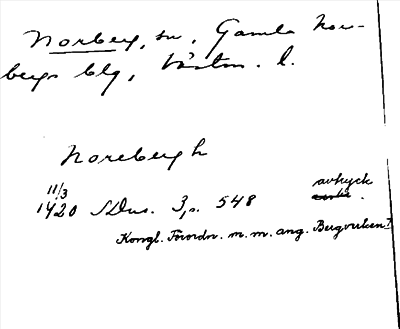 Norberg, sn, Gamla Nor-
bergs blg, Västm. l.
Norebergh
11/3
1420 SDns. 3, s. 548 avtryck
Kongl. Förordn. m.m. ang. Bergverken